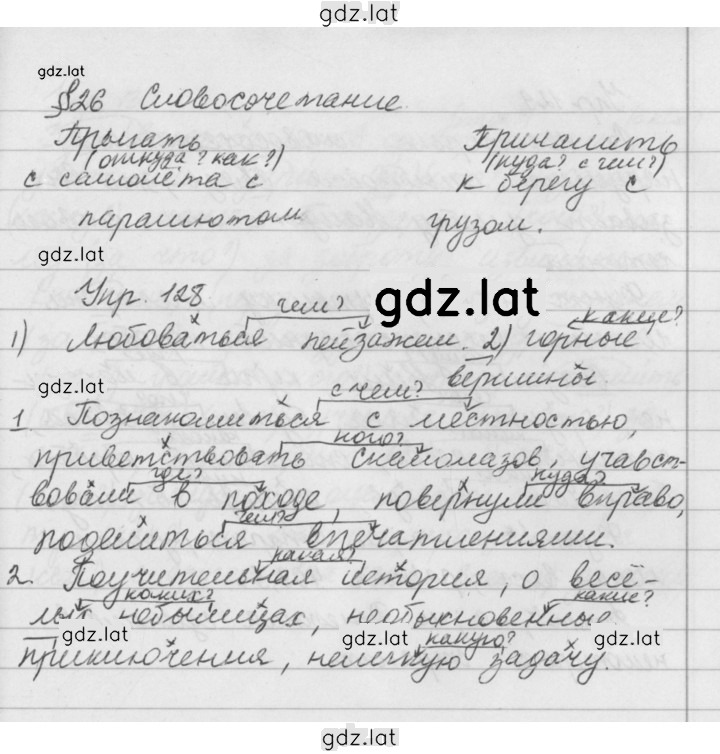 gdz.lat
gdz.lat
§26 Словосочетание
Прыгать Причалить
(откуда? как?) (куда? с чем?)
с самолёта с к берегу с
парашютом грузом.
gdz.lat
Упр. 128
gdz.lat
чем? какие?
1) Любоваться пейзажем. 2) горные
вершины.
gdz.lat
с чем?
1 Познакомиться с местностью,
кого?
приветствовать скалолазов, участ-
где? куда?
вовали в походе, повернули вправо,
чем?
поделиться впечатлениями.
какая?
2. Поучительная история, о весё-
каких? какие?
лых небылицах, необыкновенные
gdz.lat gdz.lat gdz.lat
какую?
приключения, нелегкую задачу.
gdz.lat